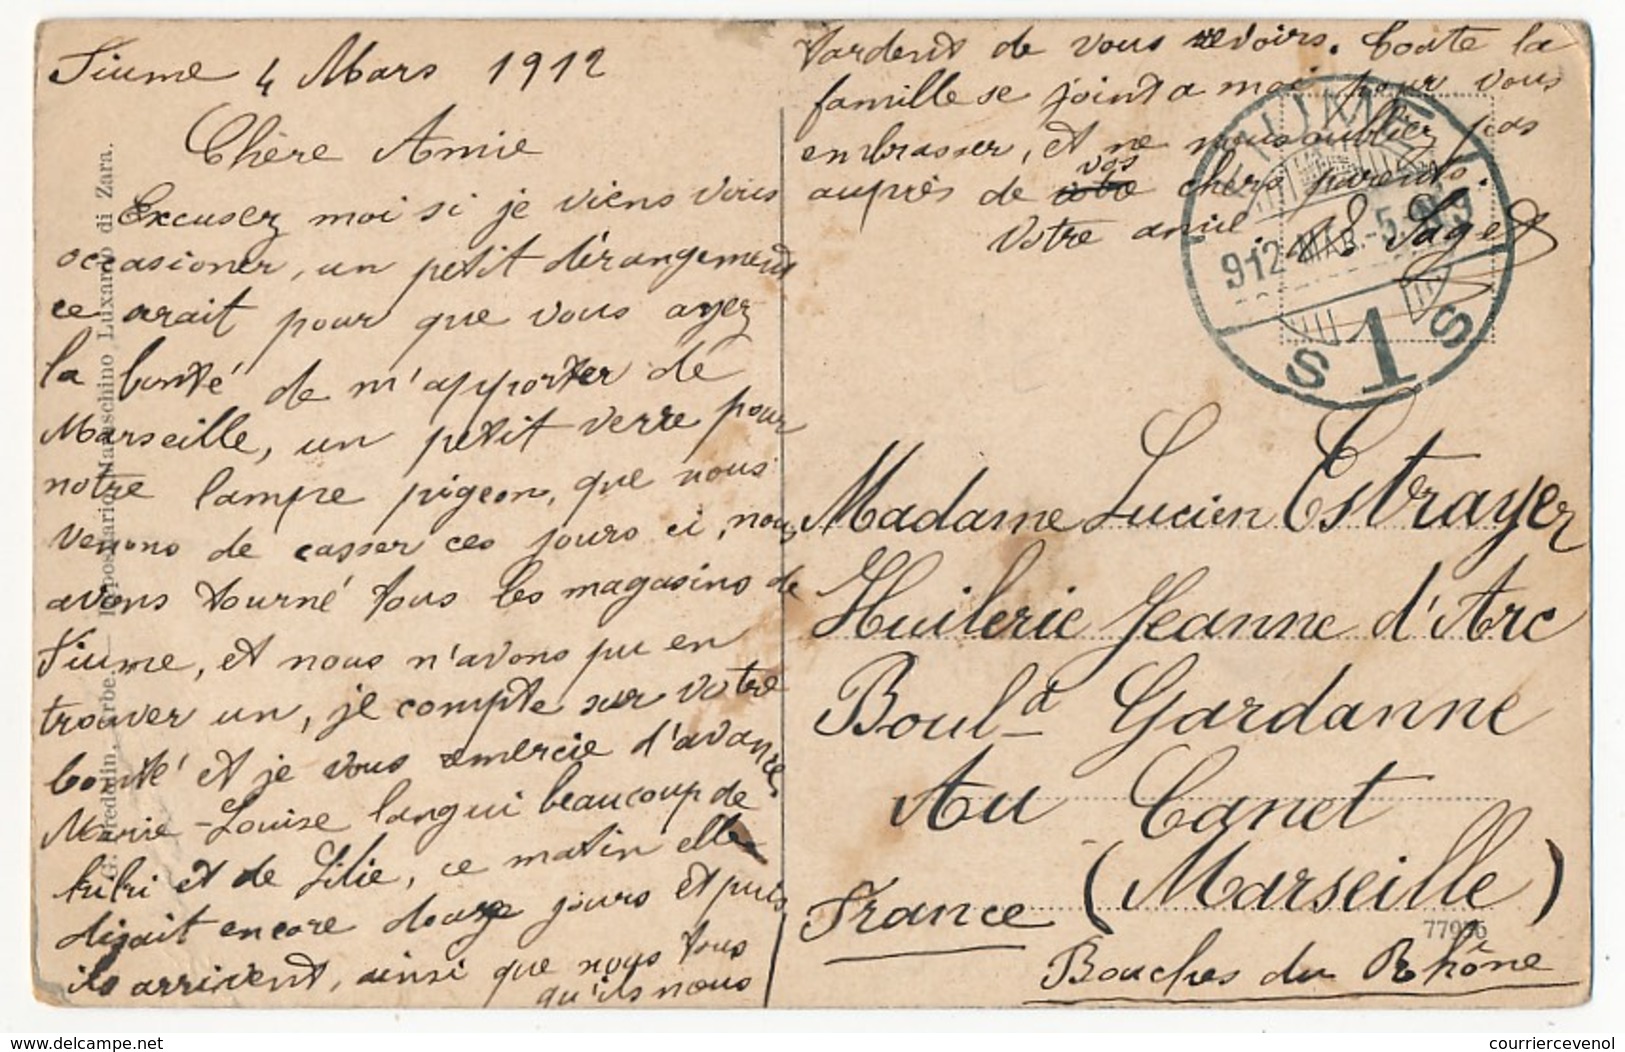 Fiume 4 Mars 1912
Chère Amie
Excusez moi si je viens vous
occasioner, un petit dérangement
ce srait pour que vous ayez
la bonté de m'apporter de
Marseille, un petit verre pour
notre lampe pigeon, que nous
venons de casser ces jours ci, nous
avons tourné tous les magasins de
Fiume, et nous n'avons pu en
trouver un, je compte sur votre
bonté et je vous remercie d'avance,
Marie-Louise langui beaucoup de
kiki et de Lilie, ce matin elle
disait encore douze jours et puis
ils arrivent, ainsi que nous tous
qu'ils nous
tardent de vous revoirs. Toute la
famille se joint a moi pour vous
embrasser, et ne nous oubliez pas
auprès de votre vos chers parents.
Votre amie. Sage
FIUME
912 MAR.-5.
S 1 S
Madame Lucien Estrayer
Huilerie Jeanne d'Arc
Boul.d Gardanne
Au Canet
(Marseille)
France
Bouches du Rhône
77976
G. Predolin, Arbe. — Depositario Maraschino Luxardo di Zara.
www.delcampe.net
courriercevenol